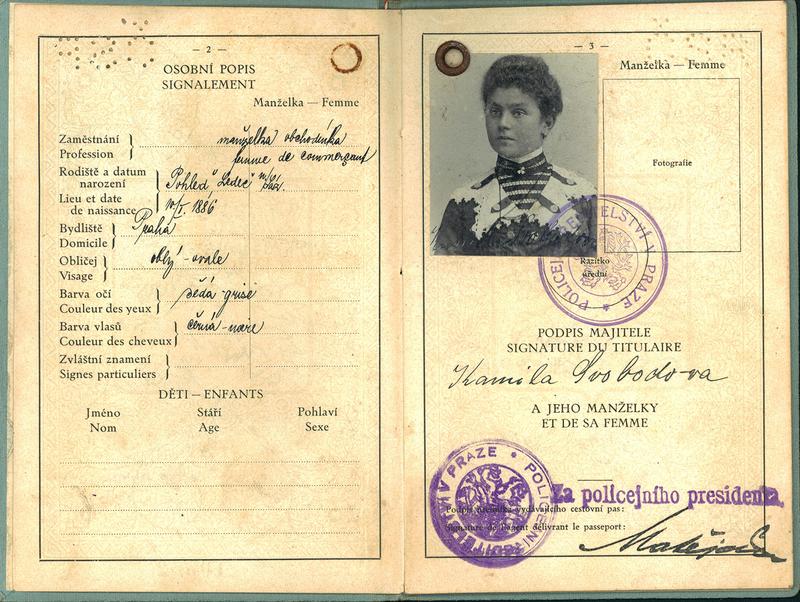 — 2 —
OSOBNÍ POPIS
SIGNALEMENT
Manželka — Femme
Zaměstnání
Profession
manželka obchodníka
femme de commerçant
Rodiště a datum
narození
Lieu et date
de naissance
Pohled "Ledeč"
10/I. 1886
Bydliště
Domicile
Praha
Obličej
Visage
oblý - ovale
Barva očí
Couleur des yeux
šedá - grise
Barva vlasů
Couleur des cheveux
černá - noire
Zvláštní znamení
Signes particuliers
DĚTI — ENFANTS
Jméno Stáří Pohlaví
Nom Age Sexe
— 3 —
Manželka — Femme
Fotografie
POLICEJNÍ ŘEDITELSTVÍ V PRAZE
Razítko
úřední
PODPIS MAJITELE
SIGNATURE DU TITULAIRE
Kamila Svobodova
A JEHO MANŽELKY
ET DE SA FEMME
POLICEJNÍ ŘEDITELSTVÍ V PRAZE
Za policejního presidenta.
Podpis úředníka vydávajícího cestovní pas:
Signature de l'agent délivrant le passeport: